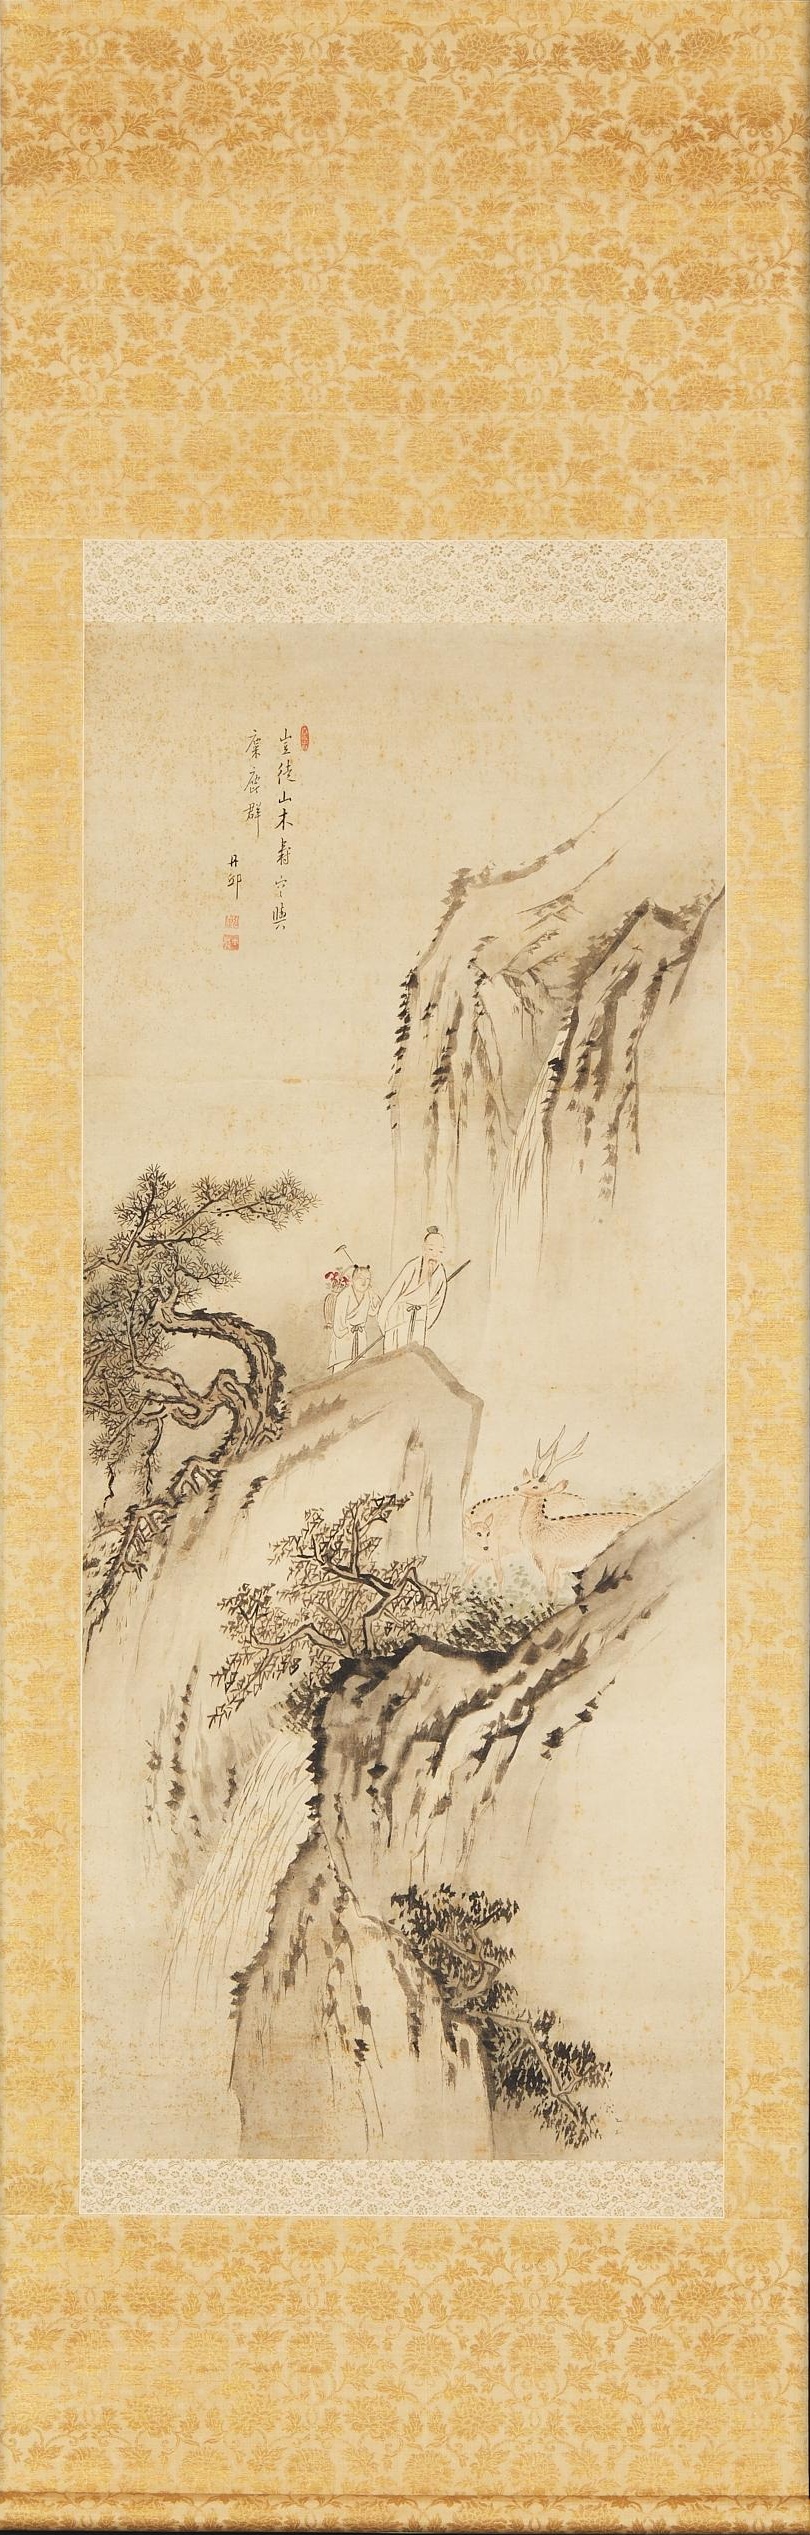 豈徒山木壽空與
麋鹿群
丹邱